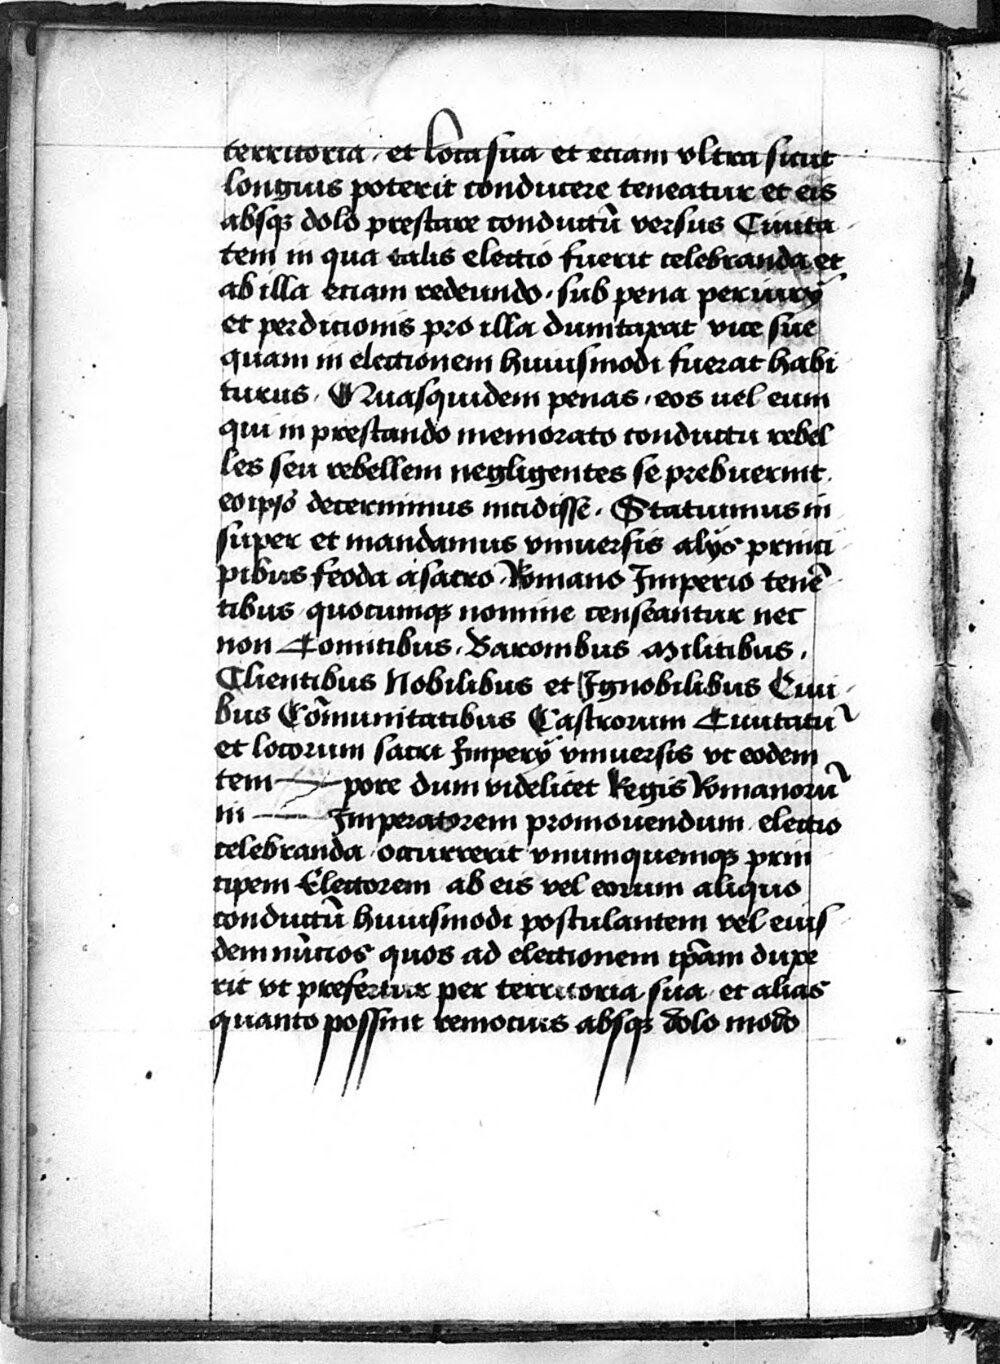 territoria, et loca sua et eciam vltra sicut
longius poterit conducere teneatur et eis
absqꝫ dolo prestare conductū versus Ciuita
tem in qua talis electio fuerit celebranda et
ab illa eciam redeundo, sub pena periurÿ
et perdicionis pro illa dumtaxat vice sue
quam in electionem huiusmodi fuerat habi
turus, Quasquidem penas, eos uel eum
qui in prestando memorato conductu rebel
les seu rebellem negligentes se prebuerint,
eo ip̄o decernimus incidisse, Statuimus in
super et mandamus vniuersis alijs princi
pibus feoda a sacro Romano Imperio tenē
tibus quocumqꝫ nomine censeantur nec
non Comitibus, Baronibus Militibus,
Clientibus Nobilibus et Ignobilibus Ciui
bus Cōmunitatibus Castrorum Ciuitatū
et locorum sacri Imperÿ vniuersis vt eodem
tem pore dum videlicet Regis Romanorū
in Imperatorem promouendum electio
celebranda occurrerit vnumquemqꝫ prin
cipem Electorem ab eis vel eorum aliquo
conductū huiusmodi postulantem vel eius
dem nūcios quos ad electionem ip̄am duxe
rit vt prefertur per territoria sua et alias
quanto possint remocius absqꝫ dolo modo